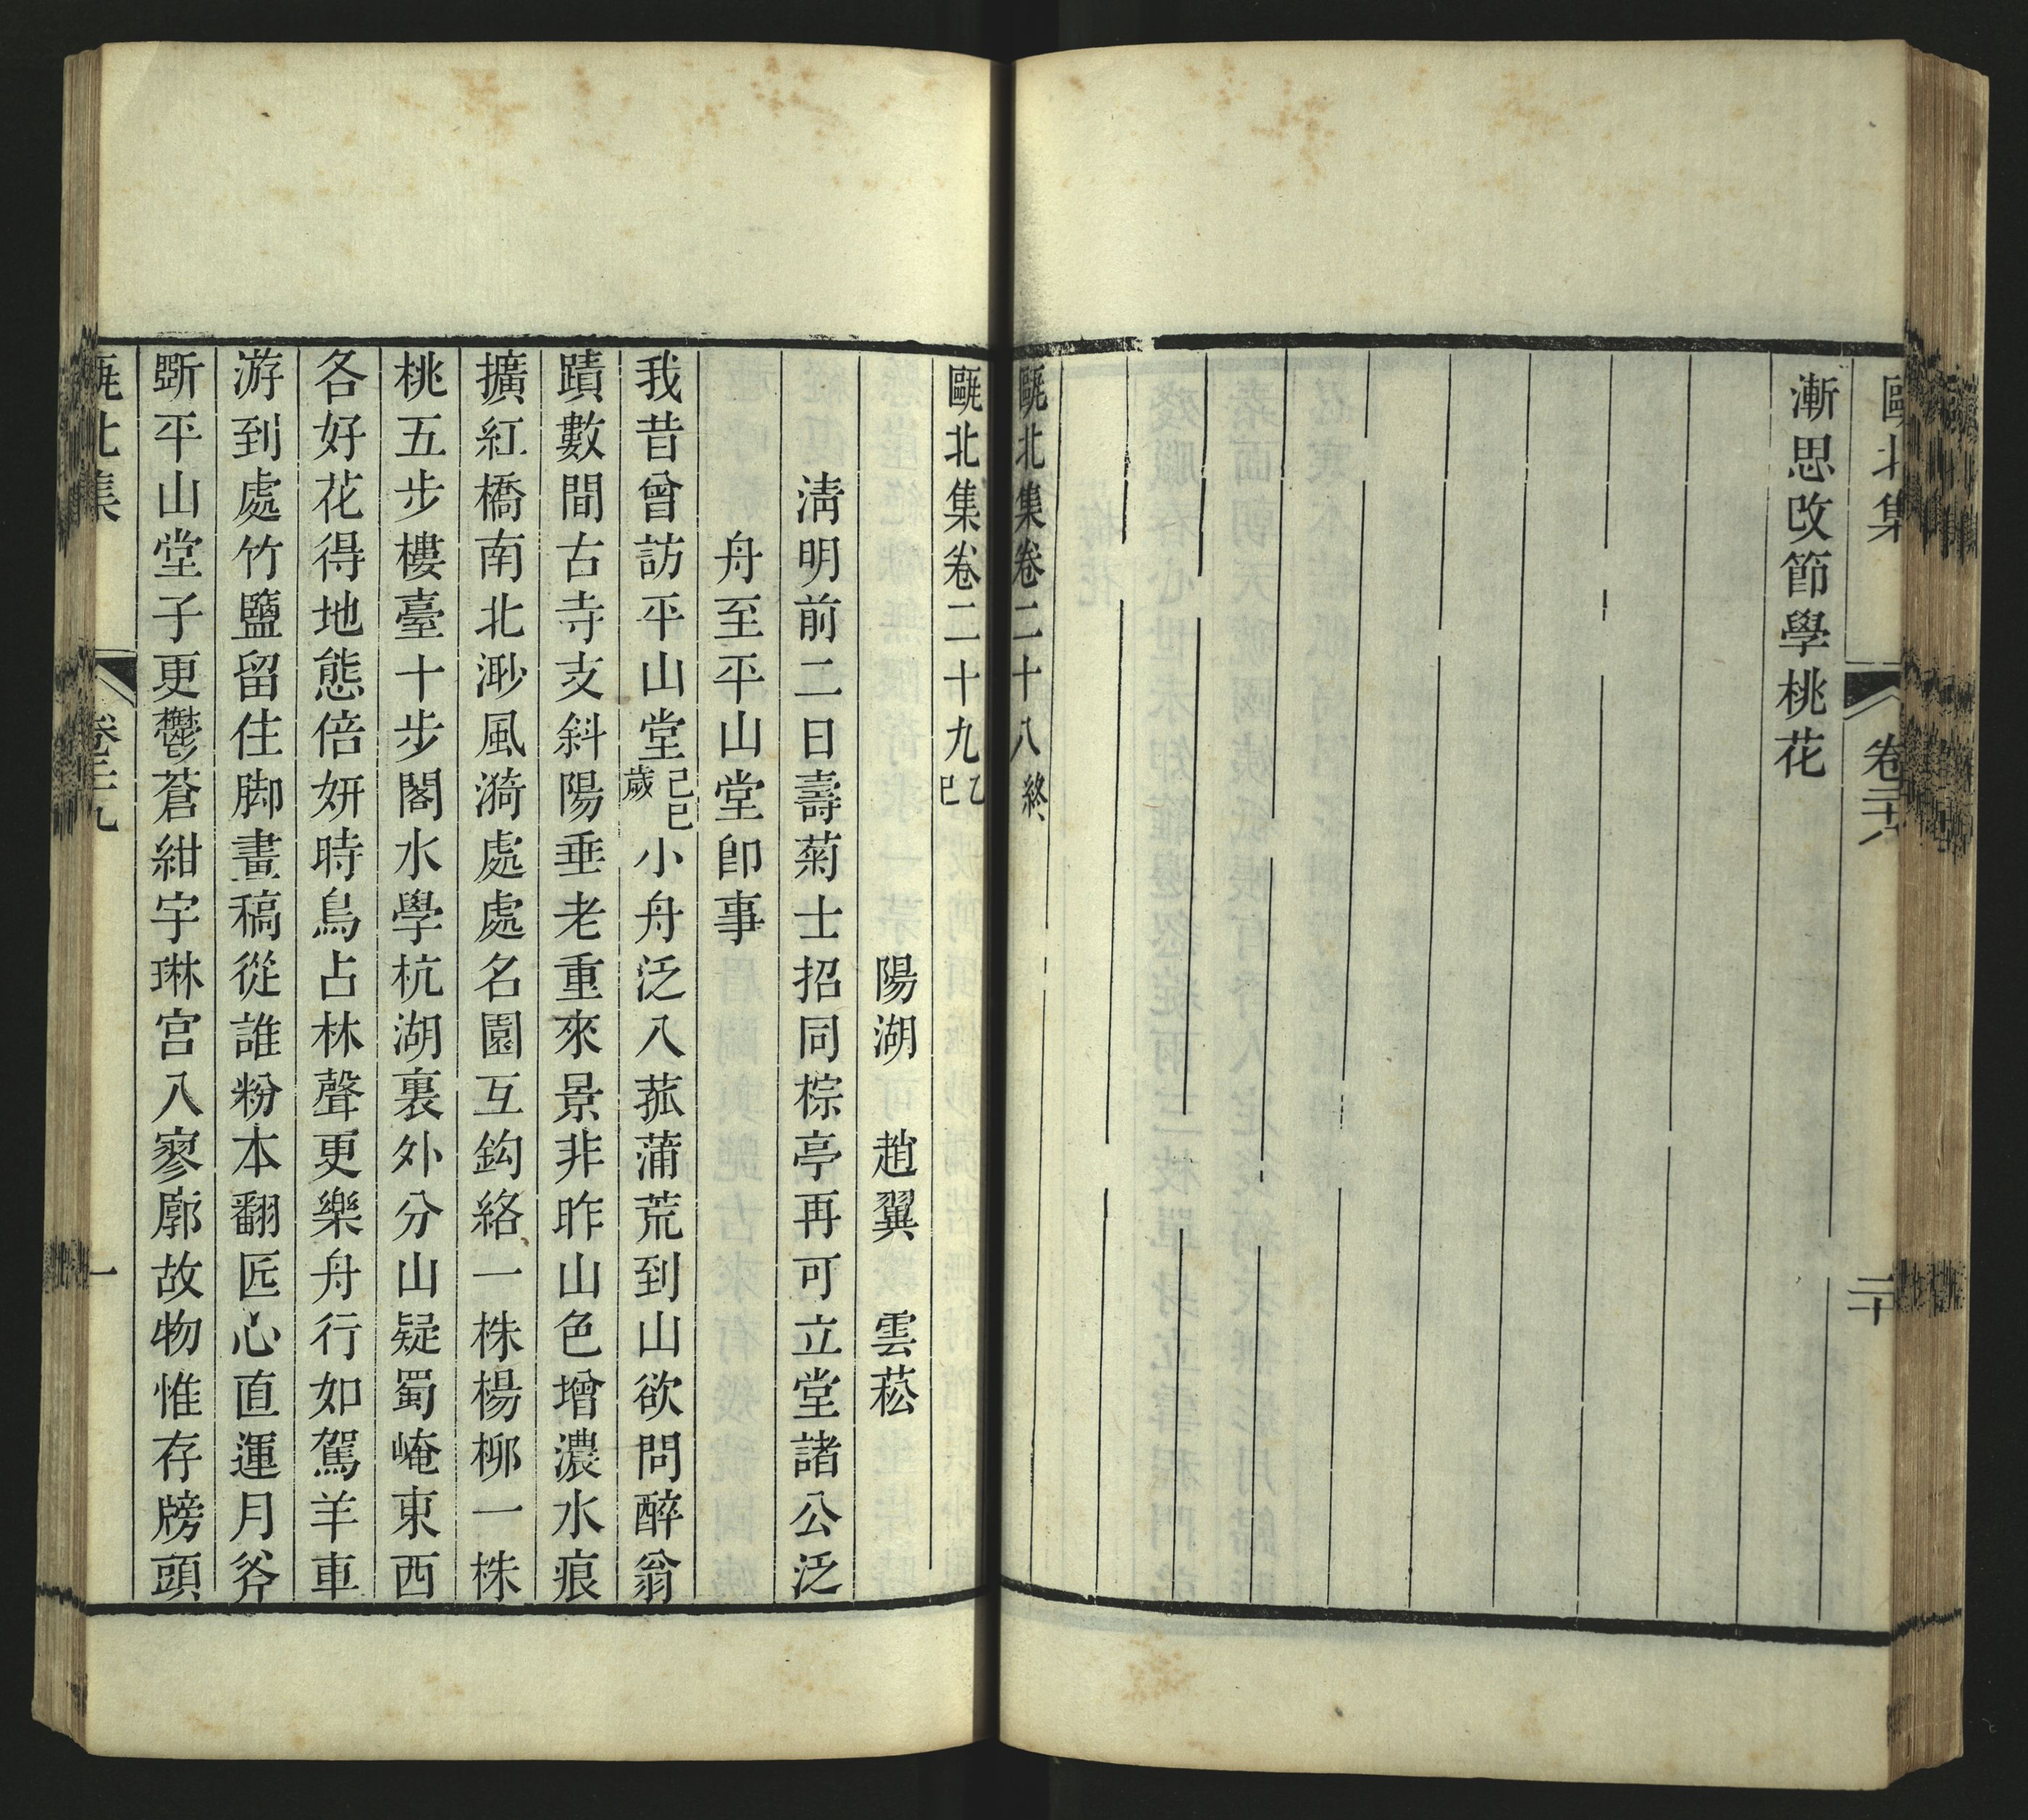 甌北集 卷二十八 二十
漸思改節學桃花
甌北集卷二十八終
甌北集卷二十九乙巳
陽湖 趙翼 雲菘
淸明前二日壽菊士招同棕亭再可立堂諸公泛
舟至平山堂卽事
我昔曾訪平山堂己巳歲小舟泛入菰蒲荒到山欲問醉翁
蹟數間古寺支斜陽垂老重來景非昨山色增濃水痕
擴紅橋南北渺風漪處處名園互鈎絡一株楊柳一株
桃五步樓臺十步閣水學杭湖裏外分山疑蜀崦東西
各好花得地態倍妍時鳥占林聲更樂舟行如駕羊車
游到處竹鹽留住脚畫稿從誰粉本翻匠心直運月斧
斲平山堂子更鬱蒼紺宇琳宮入寥廓故物惟存牓頭
甌北集 卷二十九 一